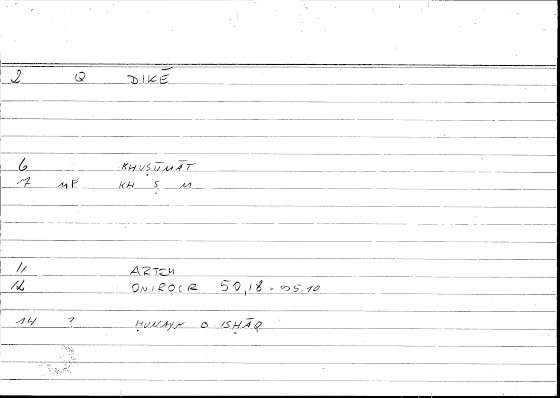 2 Q DIKĒ
6 KHUṢŪMĀT
7 MP KH Ṣ M
11 ARTEM
12 ONIROCR 50,18 - 95.10
14 ? ḤUNAYN B ISḤĀQ